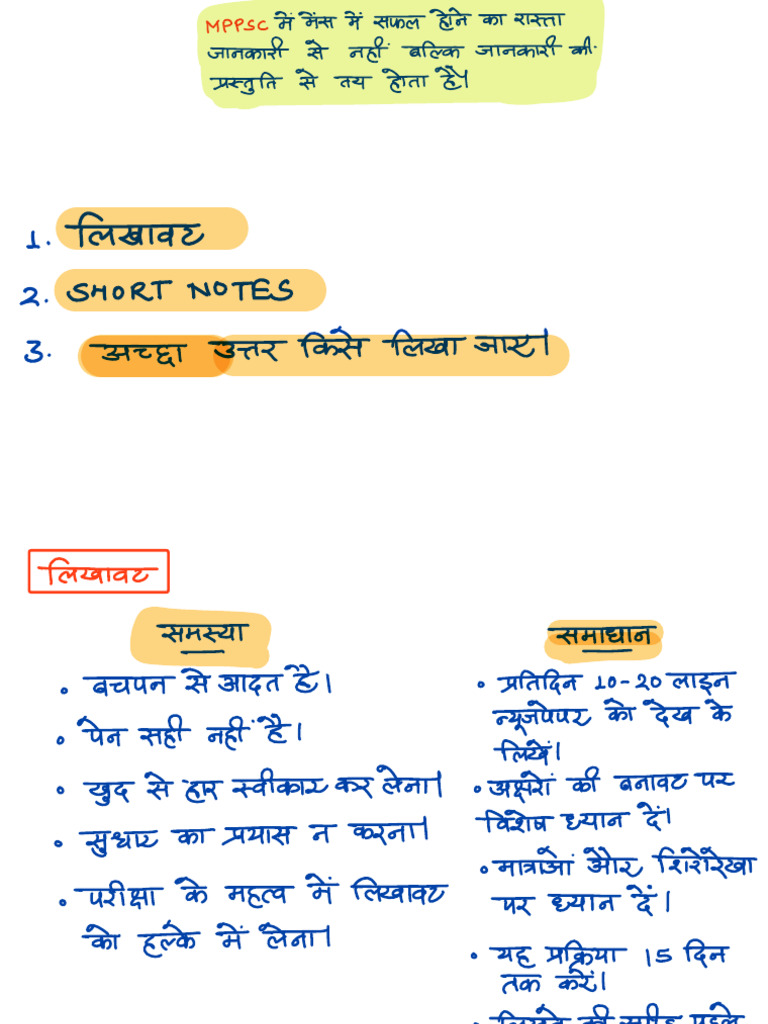 MPPSC में मेंस में सफल होने का रास्ता
जानकारी से नहीं बल्कि जानकारी की
प्रस्तुति से तय होता है।
1. लिखावट
2. SHORT NOTES
3. अच्छा उत्तर किसे लिखा जाए।
लिखावट
समस्या
• बचपन से आदत है।
• पेन सही नहीं है।
• खुद से हार स्वीकार कर लेना।
• सुधार का प्रयास न करना।
• परीक्षा के महत्व में लिखावट
को हल्के में लेना।
समाधान
• प्रतिदिन 10-20 लाइन
न्यूजपेपर को देख के
लिखें।
• अक्षरों की बनावट पर
विशेष ध्यान दें।
• मात्राओं और शिरोरेखा
पर ध्यान दें।
• यह प्रक्रिया 15 दिन
तक करें।